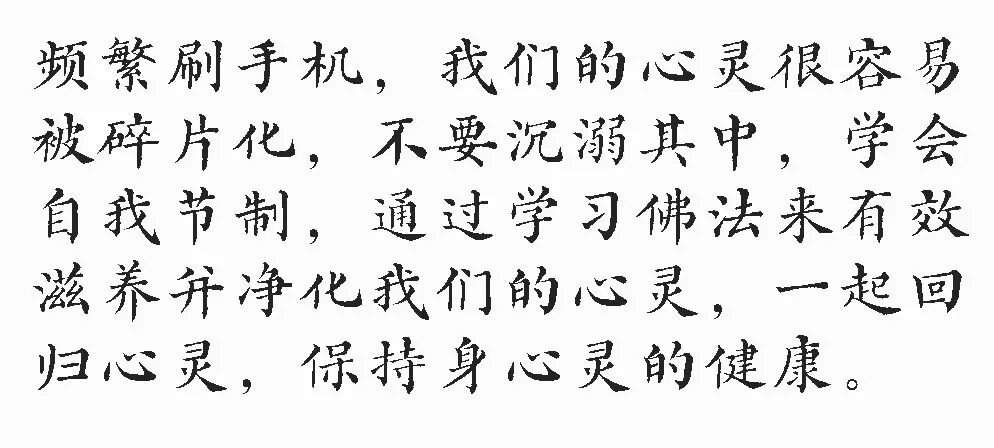 频繁刷手机，我们的心灵很容易
被碎片化，不要沉溺其中，学会
自我节制，通过学习佛法来有效
滋养并净化我们的心灵，一起回
归心灵，保持身心灵的健康。